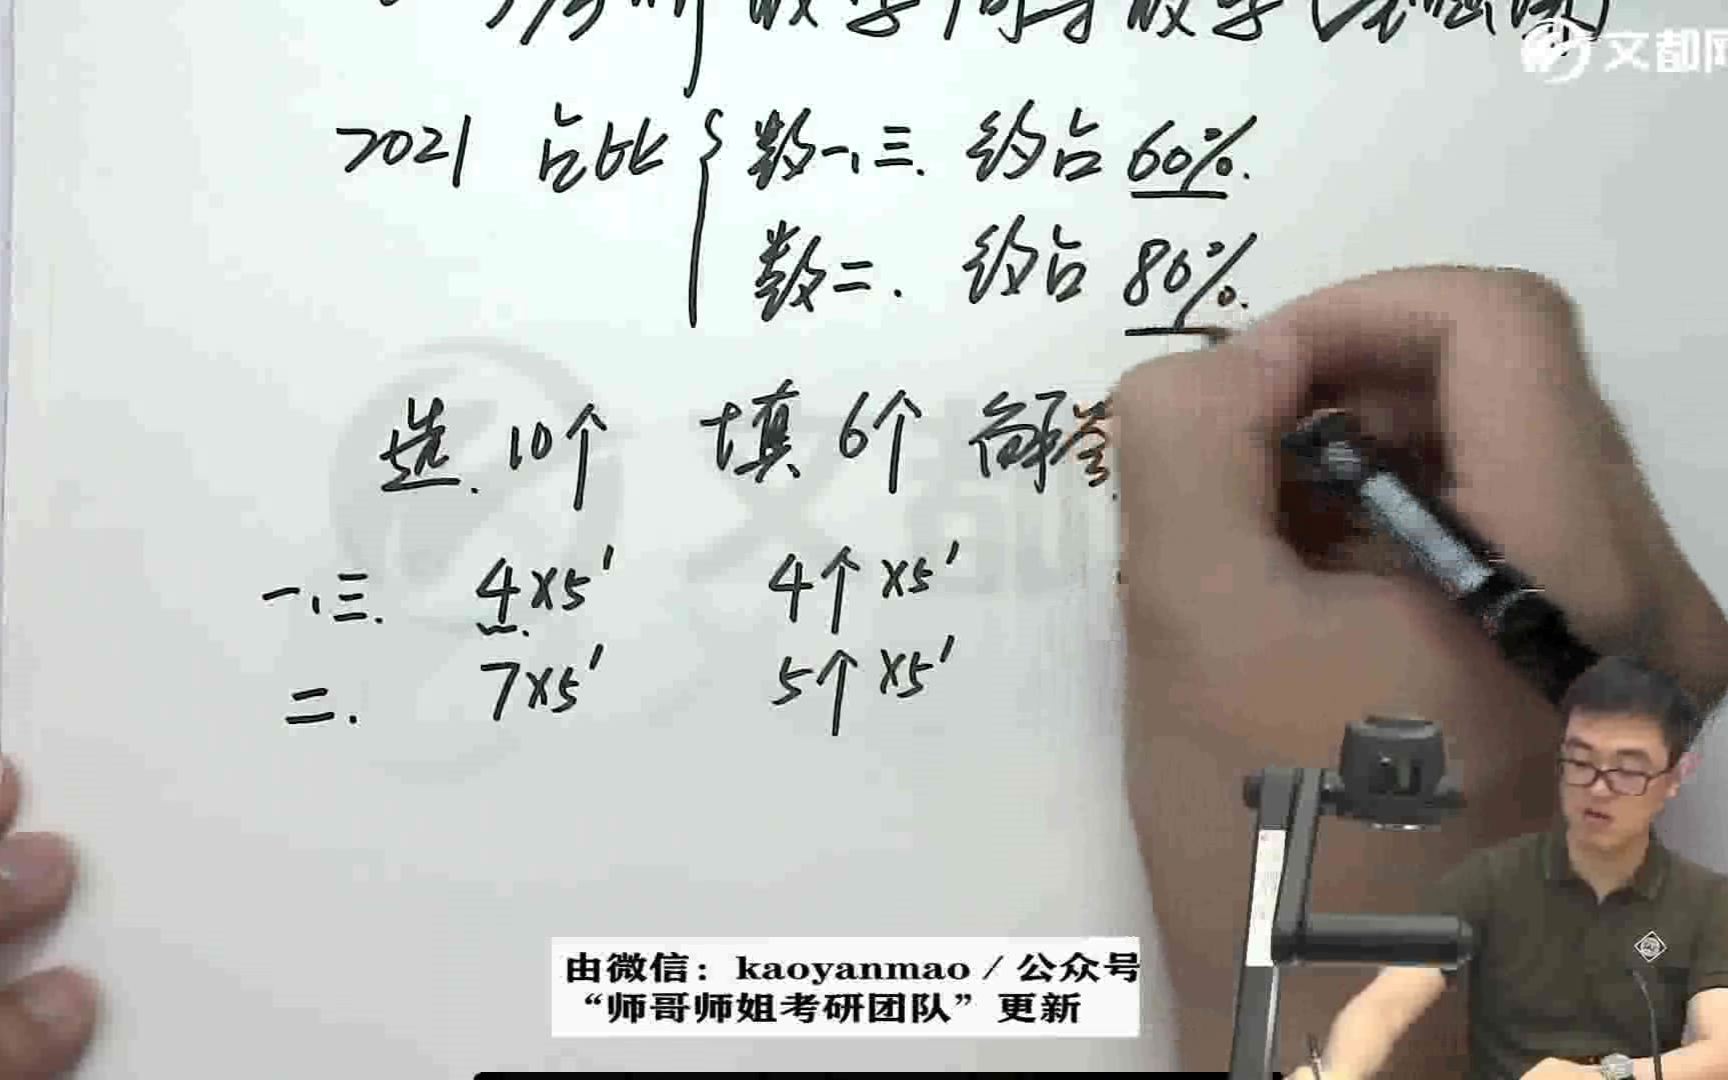 考研数学高等数学(
文都网
2021 占比 { 数一、三. 约占 60%.
数二. 约占 80%.
选. 10个 填 6个 解答
一、三. 4×5' 4个×5'
二. 7×5' 5个×5'
由微信：kaoyanmao / 公众号
“师哥师姐考研团队”更新